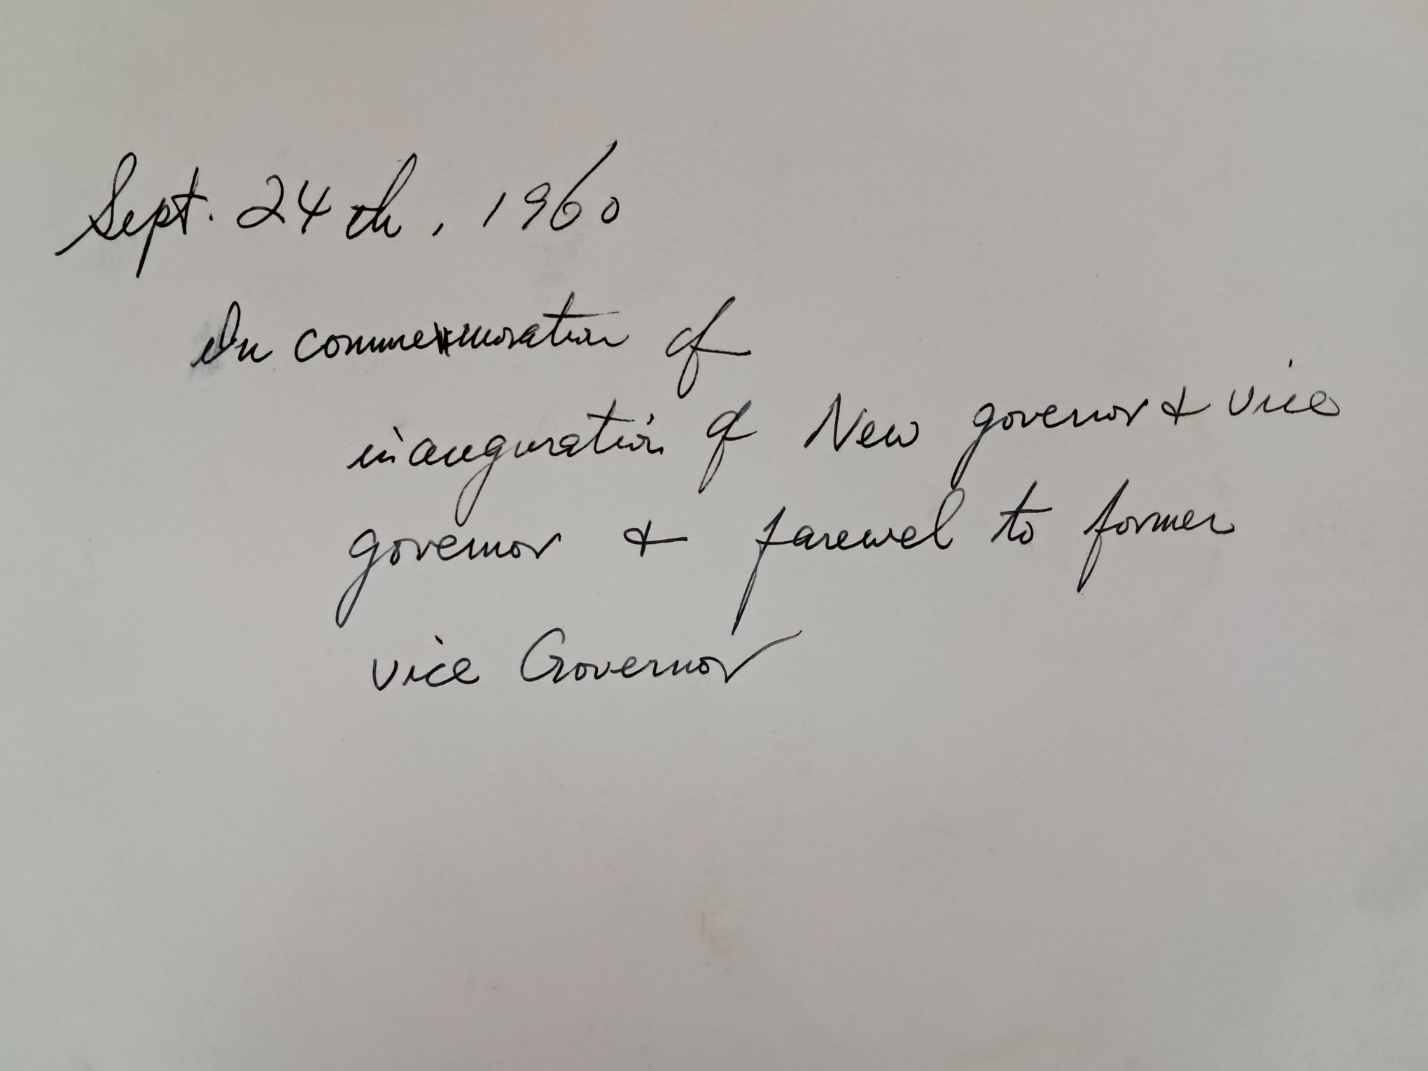 Sept. 24th, 1960
In commemoration of
inauguration of New governor & vice
governor & farewel to former
vice Governor